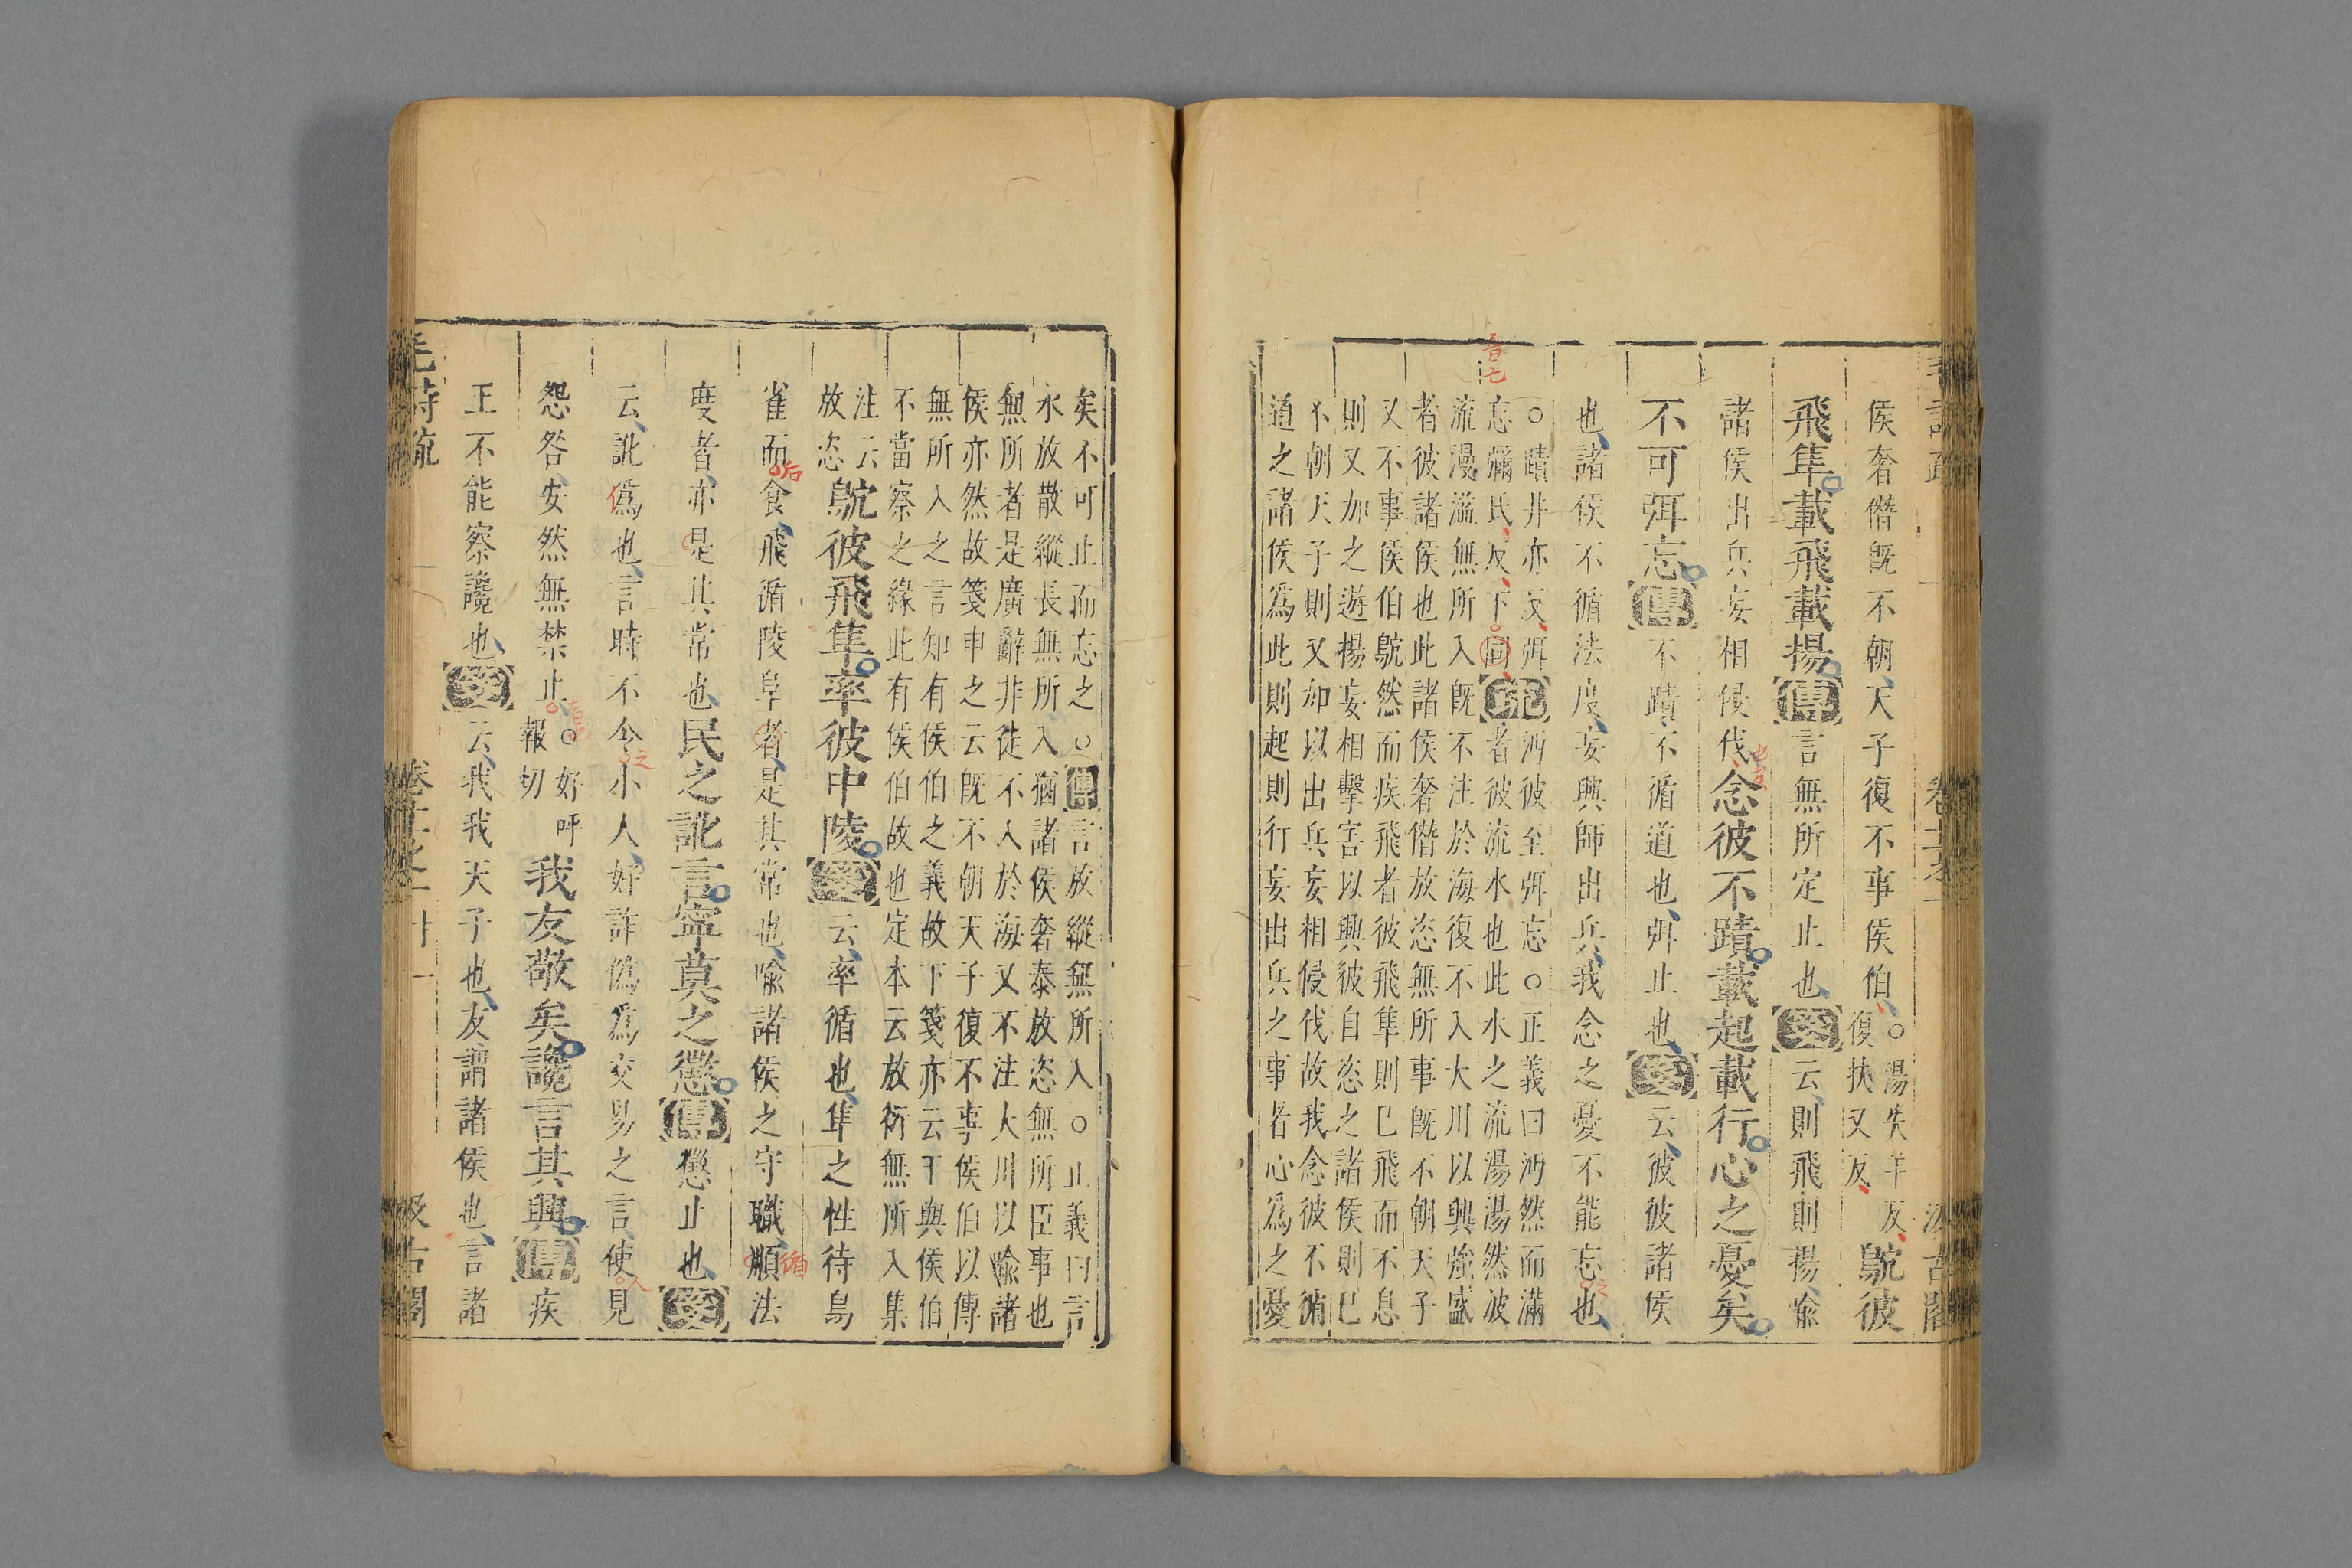 侯奢僭既不朝天子復不事侯伯○湯失羊反
復扶又反
鴥彼
飛隼載飛載揚傳言無所定止也箋云則飛則揚喻
諸侯出兵妄相侵伐念彼不蹟載起載行心之憂矣
不可弭忘傳不蹟不循道也弭止也箋云彼彼諸侯
也諸侯不循法度妄興師出兵我念之憂不能忘也
○蹟井亦反弭沔彼至弭忘○正義曰沔然而滿
忘彌氏反下同疏者彼流水也此水之流湯湯然波
流漫溢無所入既不注於海復不入大川以興強盛
者彼諸侯也此諸侯奢僭放恣無所事既不朝天子
又不事侯伯鴥然而疾飛者彼飛隼則已飛而不息
則又加之遊揚妄相擊害以興彼自恣之諸侯則已
不朝天子則又如以出兵妄相侵伐故我念彼不循
道之諸侯為此則起則行妄出兵之事者心為之憂
矣不可止而忘之○傳言放縱無所入○正義曰言
水放散縱長無所入猶諸侯奢泰放恣無所臣事也
無所者是廣辭非徒不入於海又不注大川以喻諸
侯亦然故箋申之云既不朝天子復不事侯伯以傳
無所入之言知有侯伯之義故下箋亦云不與侯伯
不當察之緣此有侯伯故也定本云放衍無所入集
注云
放恣
鴥彼飛隼率彼中陵箋云率循也隼之性待鳥
雀而食飛循陵阜者是其常也喻諸侯之守職順法
度者亦是其常也民之訛言寧莫之懲傳懲止也箋
云訛爲也言時不令小人好詐偽為交易之言使見
怨咎安然無禁止○好呼
報切
我友敬矣讒言其興傳疾
王不能察讒也箋云我我天子也友謂諸侯也言諸
毛詩疏
卷十一之一
十一
汲古閣